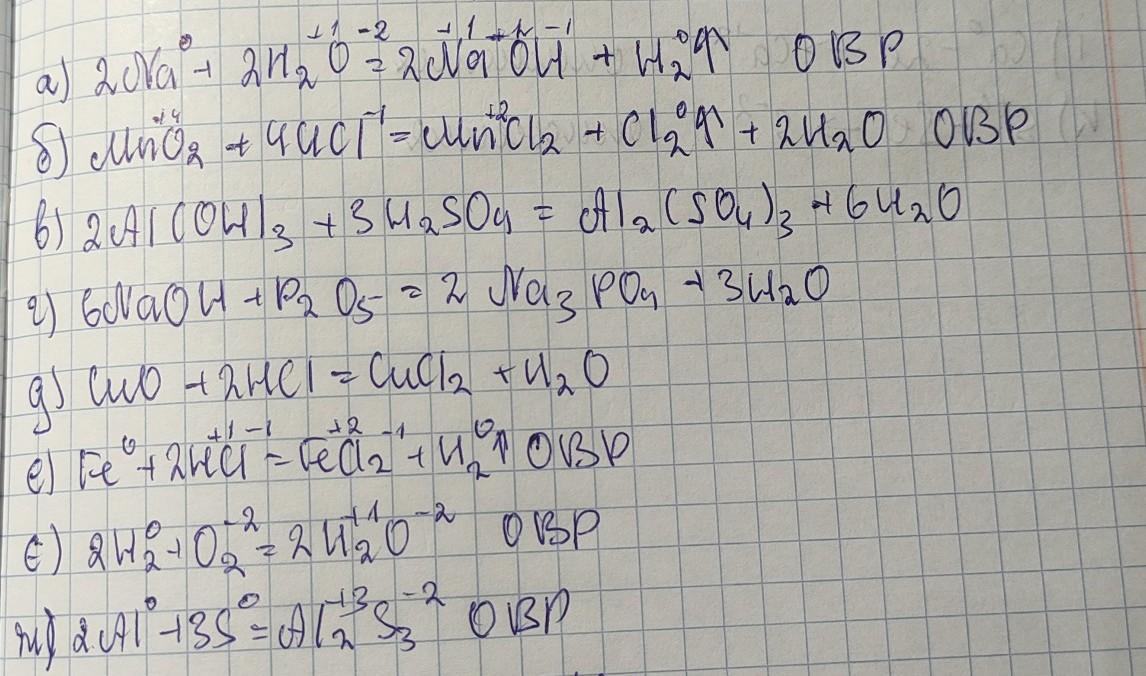 а) 2Na⁰ + 2H₂⁺¹O⁻² = 2Na⁺¹O⁺¹H⁻¹ + H₂⁰↑ ОВР
б) Mn⁺⁴O₂ + 4HCl⁻¹ = Mn⁺²Cl₂ + Cl₂⁰↑ + 2H₂O ОВР
в) 2Al(OH)₃ + 3H₂SO₄ = Al₂(SO₄)₃ + 6H₂O
г) 6NaOH + P₂O₅ = 2 Na₃PO₄ + 3H₂O
д) CuO + 2HCl = CuCl₂ + H₂O
е) Fe⁰ + 2H⁺¹Cl⁻¹ = Fe⁺²Cl₂⁻¹ + H₂⁰↑ ОВР
є) 2H₂⁰ + O₂⁻² = 2H₂⁺¹O⁻² ОВР
ж) 2Al⁰ + 3S⁰ = Al₂⁺³S₃⁻² ОВР